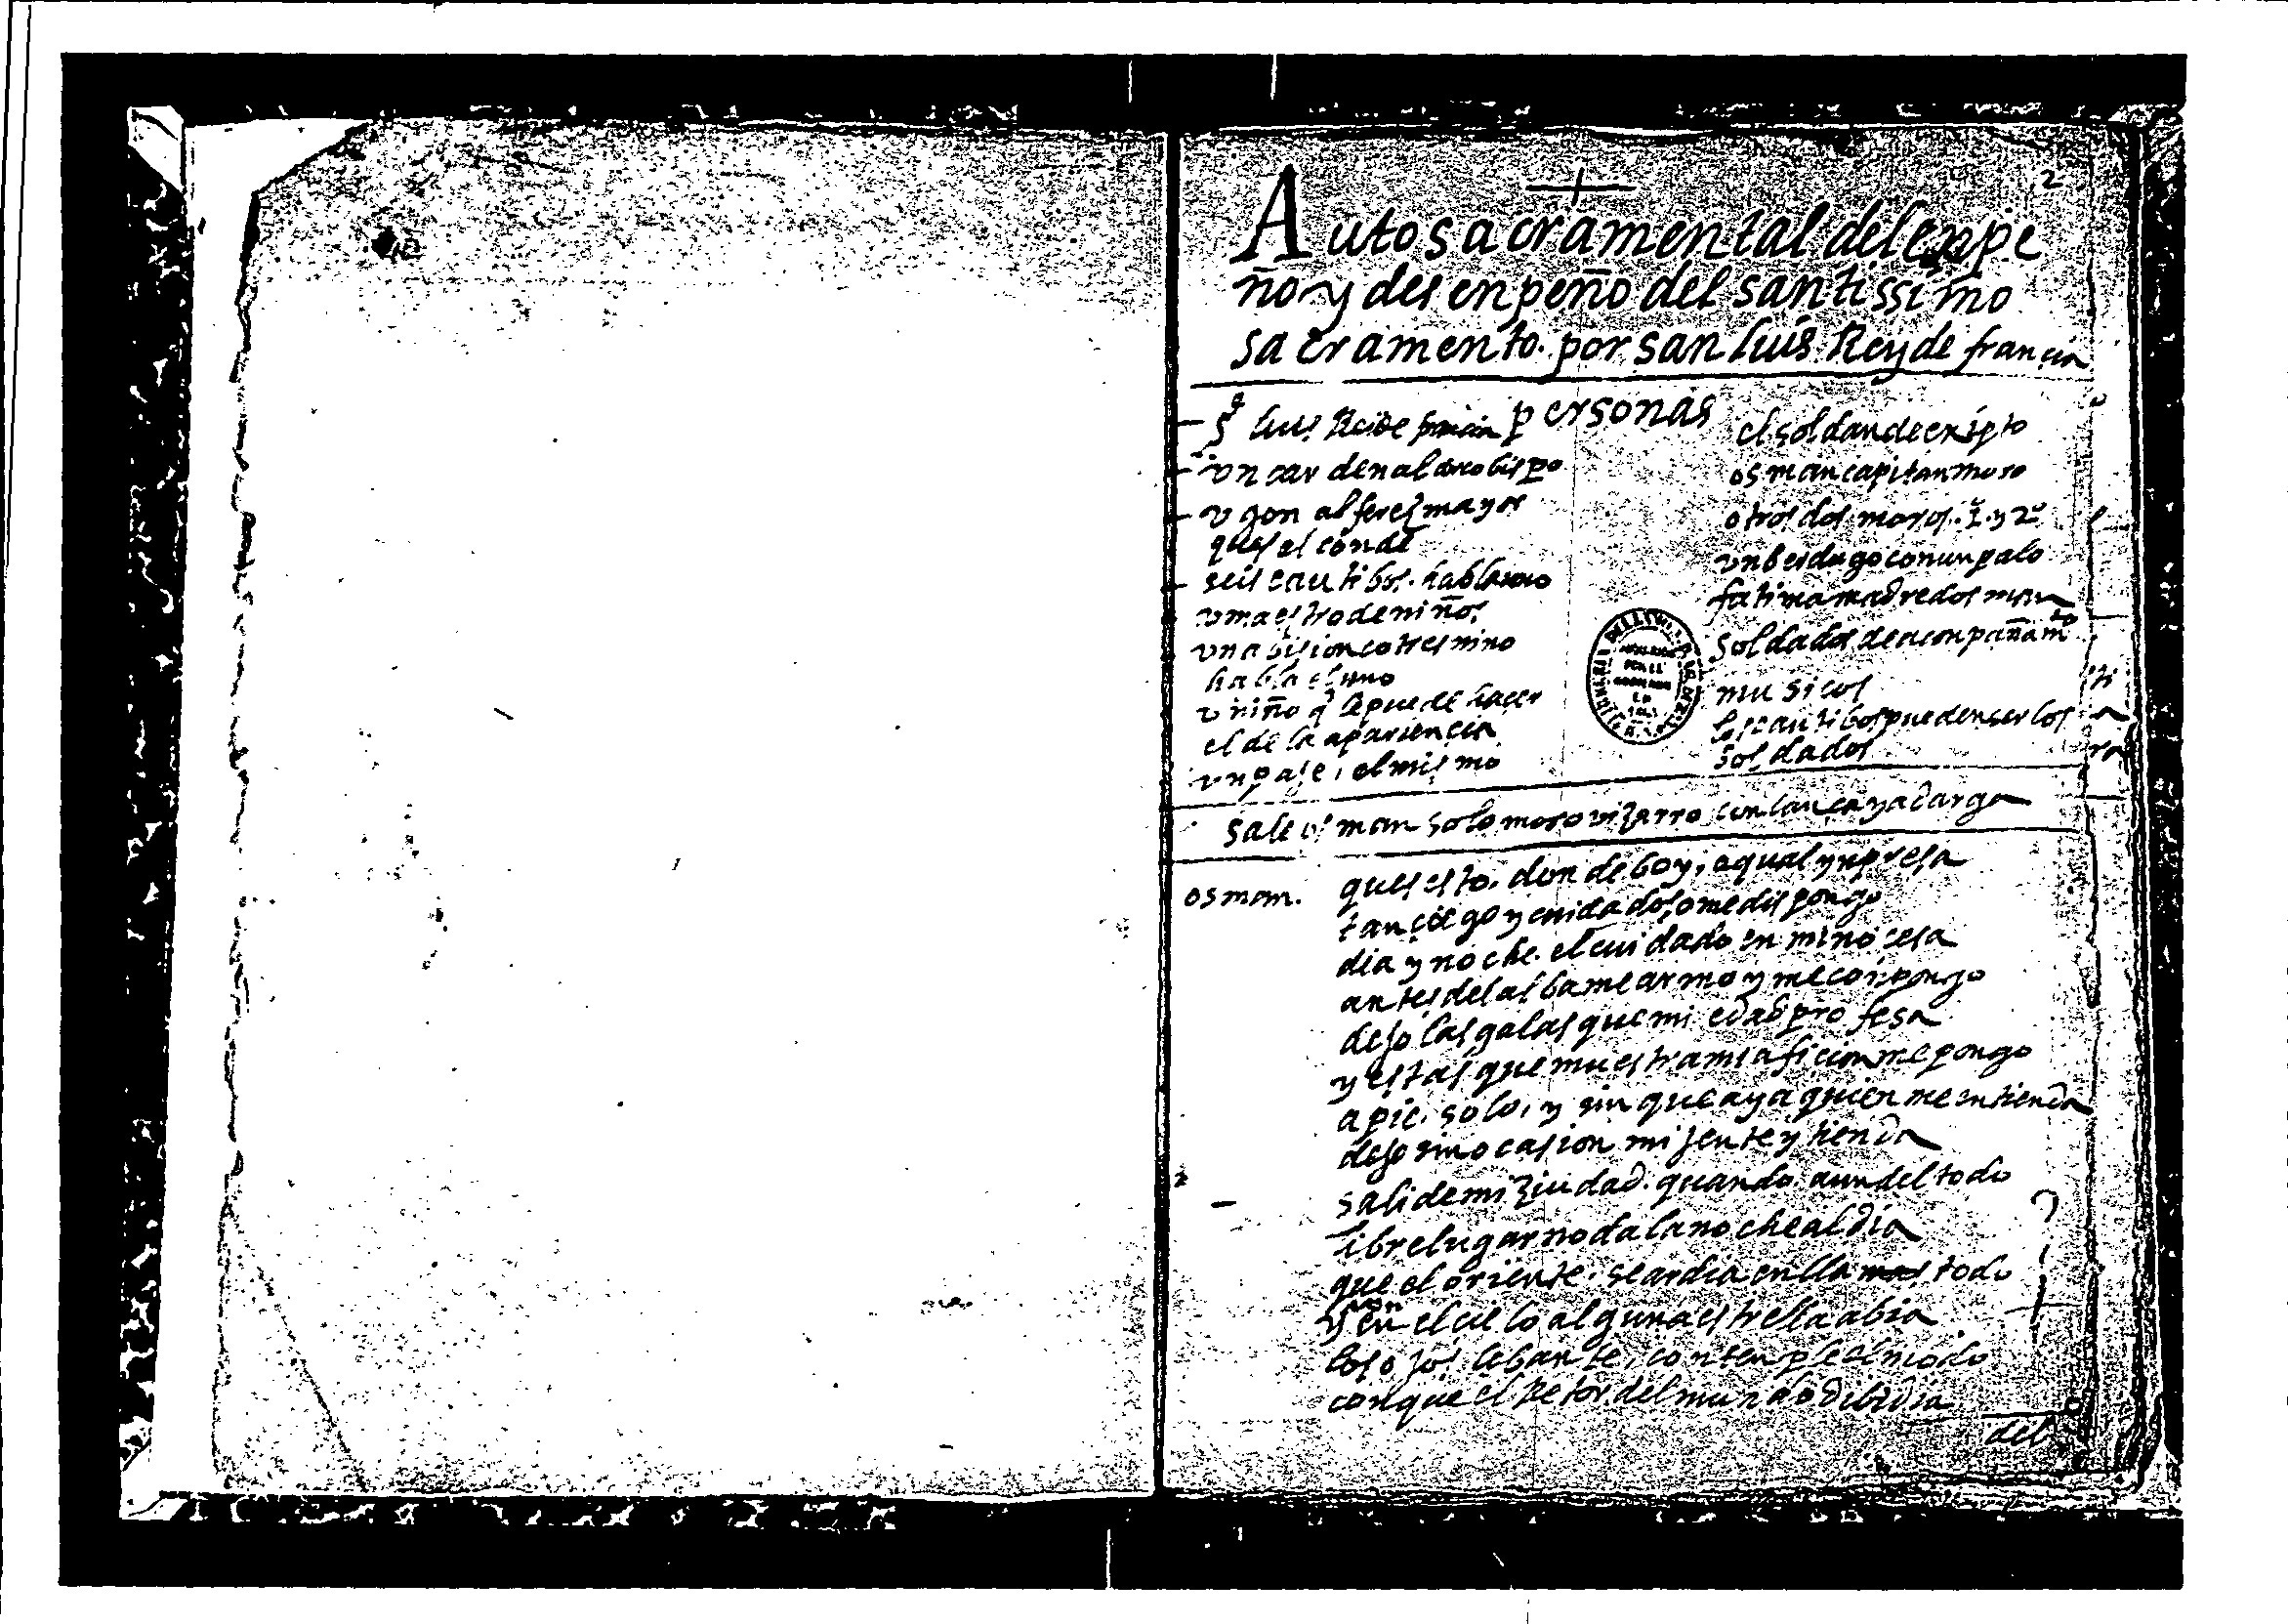 2
Auto sacramental del enpe
ño y desenpeño del santissimo
sacramento. por san luis Rey de francia
personas
S. luis Rei de francia
un cardenal arcobispo
ugon alferez mayor
ques el conde
seis cautibos. habla uno
u maestro de niños
una bision co tres nino
habla el uno
u niño q̃ le puede hacer
el de la apariencia
un paje, el mismo
el soldan de exipto
osman capitan moro
otros dos moros. 1. y 2º
un berdugo con un palo
fatima madre dosman
soldados de aconpañamto
musicos
los cautibos pueden ser los
soldados
sale osman solo moro vizarro con lança y adarga
osman. ques esto. donde boy, a qual ynpresa
tan ciego y cuidadoso me dispongo
dia y noche. el cuidado en mi no cesa
antes del alba me armo y me conpongo
dejo las galas que mi edad profesa
y estas que muestran mi aficion me pongo
a pie. solo, y sin que aya quien me entienda
dejo sin ocasion mi jente y tienda
sali de mi ziudad. quando aun del todo
libre lugar no da la noche al dia
que el oriente. se ardia en llamas todo
y aun en el cielo alguna estrella abia
los ojos lebante, contenple el modo
con que el Retor del mundo dibidia
del